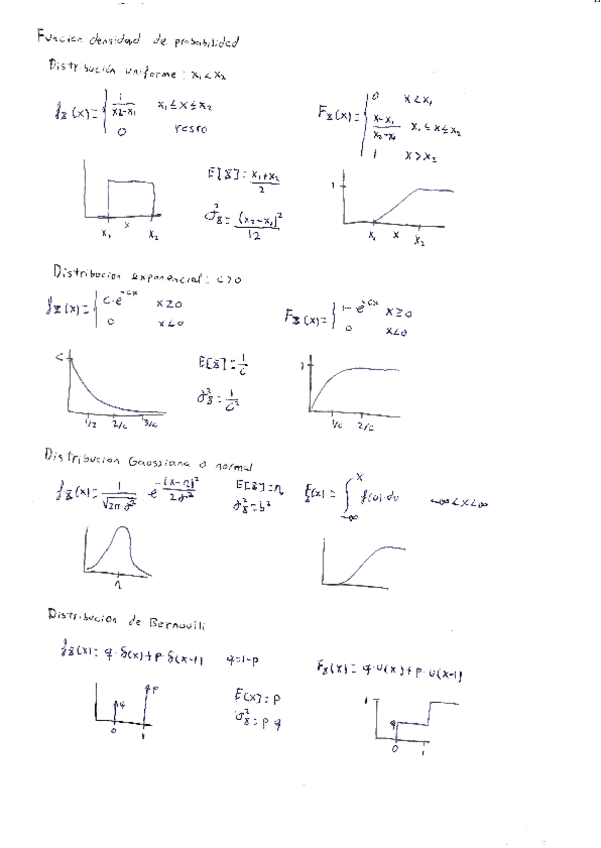 Funcion densidad de probabilidad
Distribución uniforme: x₁<x₂
f_X(x)= { 1/(x₂-x₁) x₁≤x≤x₂
0 resto
F_X(x)= { 0 x<x₁
(x-x₁)/(x₂-x₁) x₁≤x≤x₂
1 x>x₂
E[X]= (x₁+x₂)/2
σ²_X= (x₂-x₁)²/12
x₁ x x₂
1
x₁ x x₂
Distribucion exponencial: c>0
f_X(x)= { c·e^-cx x≥0
0 x<0
F_X(x)= { 1-e^-cx x≥0
0 x<0
c
E[X]= 1/c
σ²_X= 1/c²
1/2 2/c 3/c
1
1/c 2/c
Distribucion Gaussiana o normal
f_X(x)= 1/√(2π·σ²) e^-(x-η)²/2σ²
E[X]=η
σ²_X=b²
F_X(x)= ∫_-∞^x f(u)·du -∞<x<∞
η
Distribucion de Bernouili
f_X(x)= q·δ(x)+p·δ(x-1) q=1-p
F_X(x)= q·u(x)+p·u(x-1)
q p
0 1
E(x)=p
σ²_X=p q
1
q
0 1